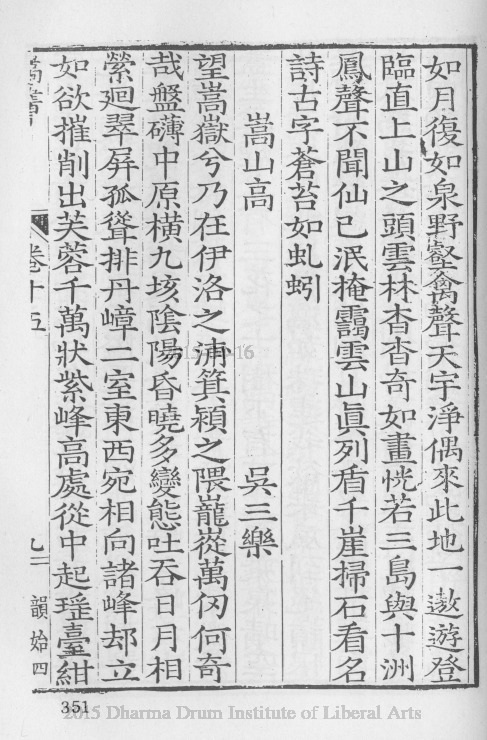 如月復如泉野壑禽聲天宇淨偶來此地一遨遊登
臨直上山之頭雲林杳杳奇如畫恍若三島與十洲
鳳聲不聞仙已泯掩靄雲山眞列盾千崖掃石看名
詩古字蒼苔如虬蚓
嵩山高 吳三樂
望嵩嶽兮乃在伊洛之浦箕潁之隈巃嵸萬仞何奇
哉盤礴中原橫九垓陰陽昏曉多變態吐吞日月相
縈廻翠屏孤聳排丹嶂二室東西宛相向諸峰却立
如欲摧削出芙蓉千萬狀紫峰高處從中起瑶臺紺
嵩書 卷十五 九二 韻始四
2015-09-16
351
2015 Dharma Drum Institute of Liberal Arts